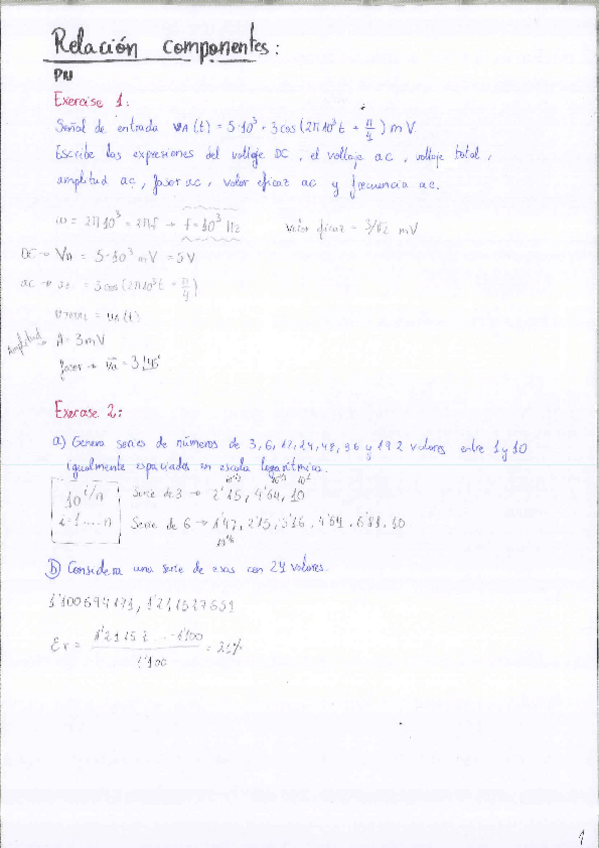 Relación componentes:
PN
Exercise 1:
Señal de entrada vA(t) = 5·10³ + 3cos(2π10³t + π/4) mV.
Escribe las expresiones del voltaje DC, el voltaje ac, voltaje total,
amplitud ac, fasor ac, valor eficaz ac y frecuencia ac.
ω = 2π10³ = 2πf → f = 10³ Hz
Valor eficaz = 3/√2 mV
DC → VA = 5·10³ mV = 5V
ac → = 3cos(2π10³t + π/4)
= vA(t)
Amplitud A = 3mV
fasor → va = 3∠45°
Exercise 2:
a) Genera series de números de 3, 6, 12, 24, 48, 96 y 192 valores entre 1 y 10
igualmente espaciados en escala logarítmica.
10^i/n
i=1....n
Serie de 3 → 2'15, 4'64, 10
Serie de 6 → 1'47, 2'15, 3'16, 4'64, 6'81, 10
b) Considera una serie de esas con 24 valores.
1'100694171, 1'211527659
Er = 1'2115 - 1'100 / 1'100 =
1